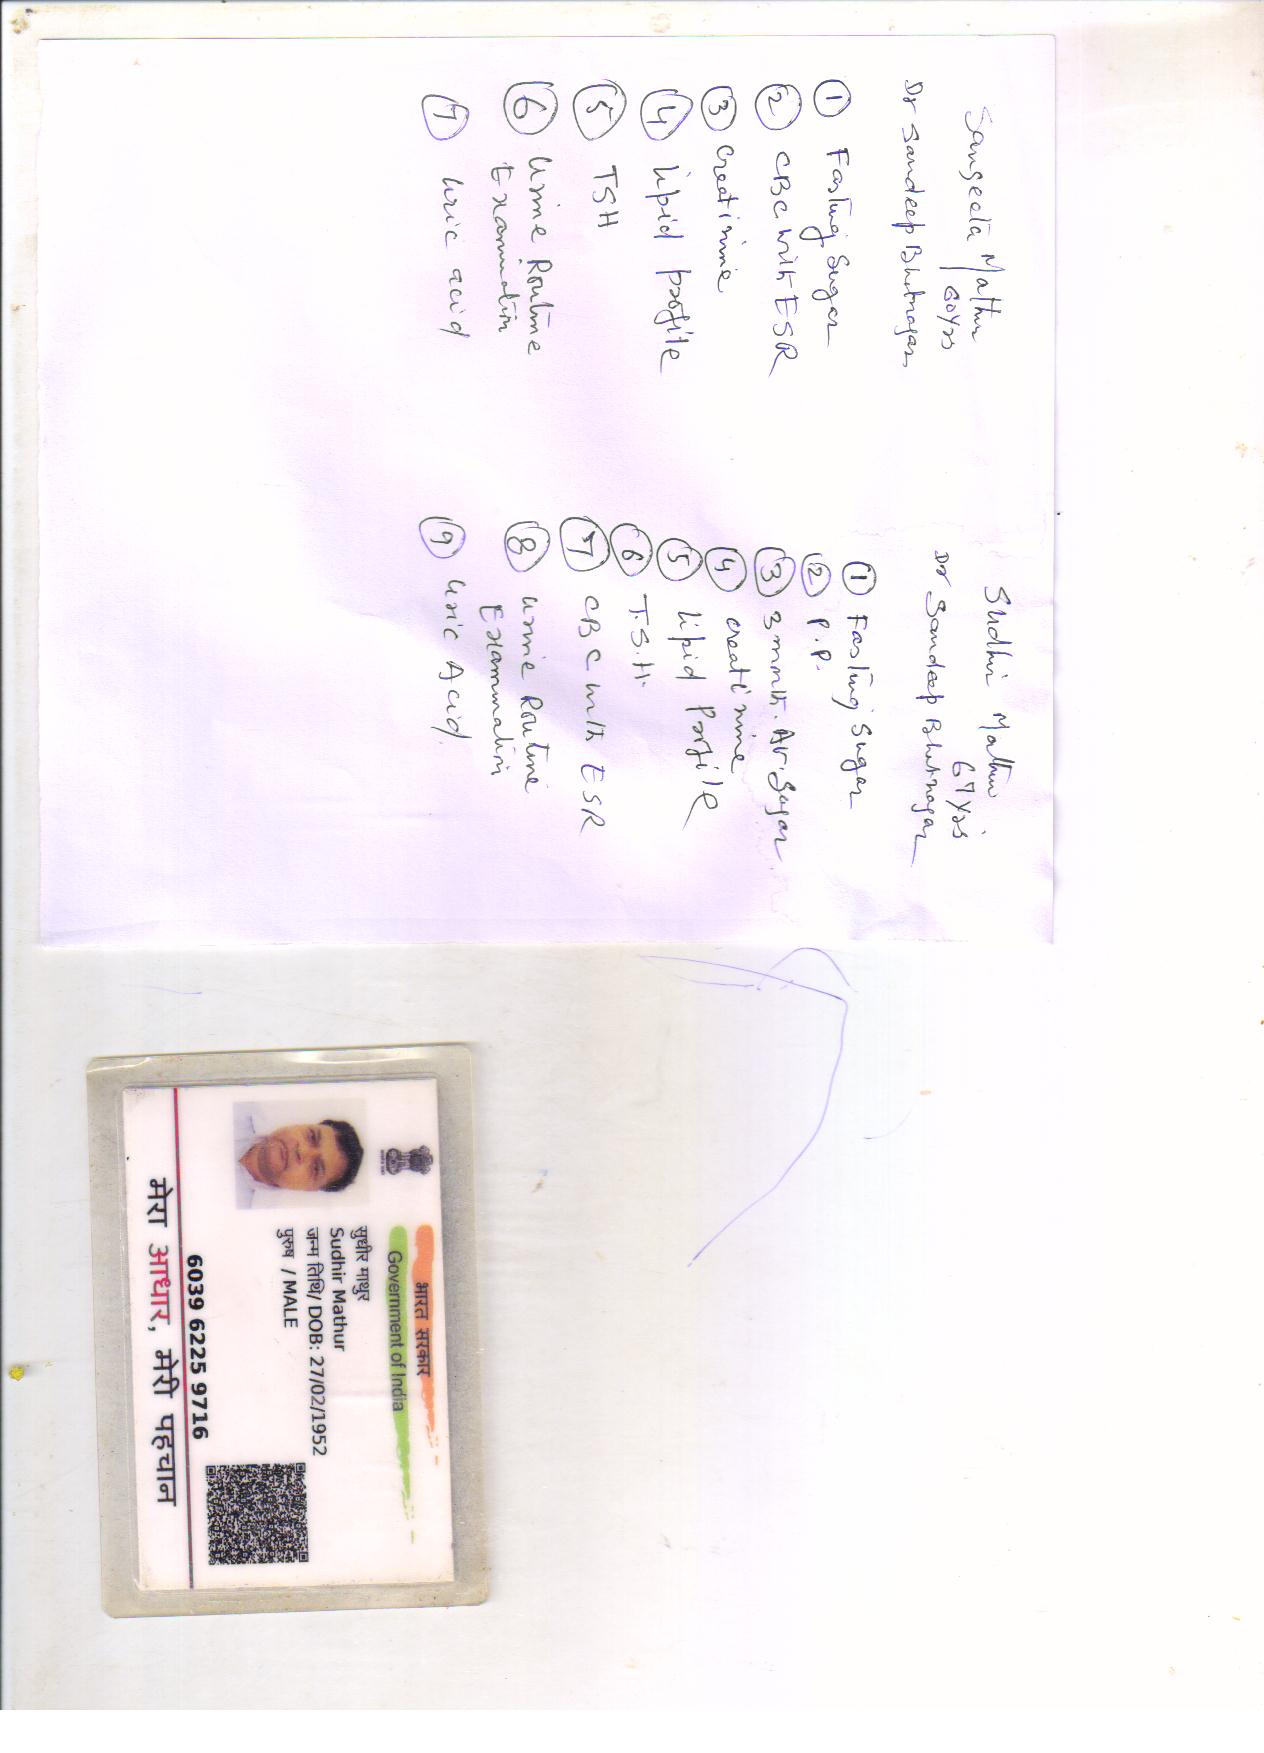 Sangeeta Mathur
60 yrs
Dr Sandeep Bhatnagar
1 Fasting Sugar
2 CBC with ESR
3 Creatinine
4 lipid profile
5 TSH
6 Urine Routine
Examination
7 Uric acid
Sudhir Mathur
67 yrs
Dr Sandeep Bhatnagar
1 Fasting Sugar
2 P.P.
3 3 month. Av. Sugar
4 creatinine
5 lipid Porfile
6 T.S.H.
7 CBC with ESR
8 Urine Routine
Examination
9 Uric Acid.
भारत सरकार
Government of India
सुधीर माथुर
Sudhir Mathur
जन्म तिथि/ DOB: 27/02/1952
पुरुष / MALE
6039 6225 9716
मेरा आधार, मेरी पहचान